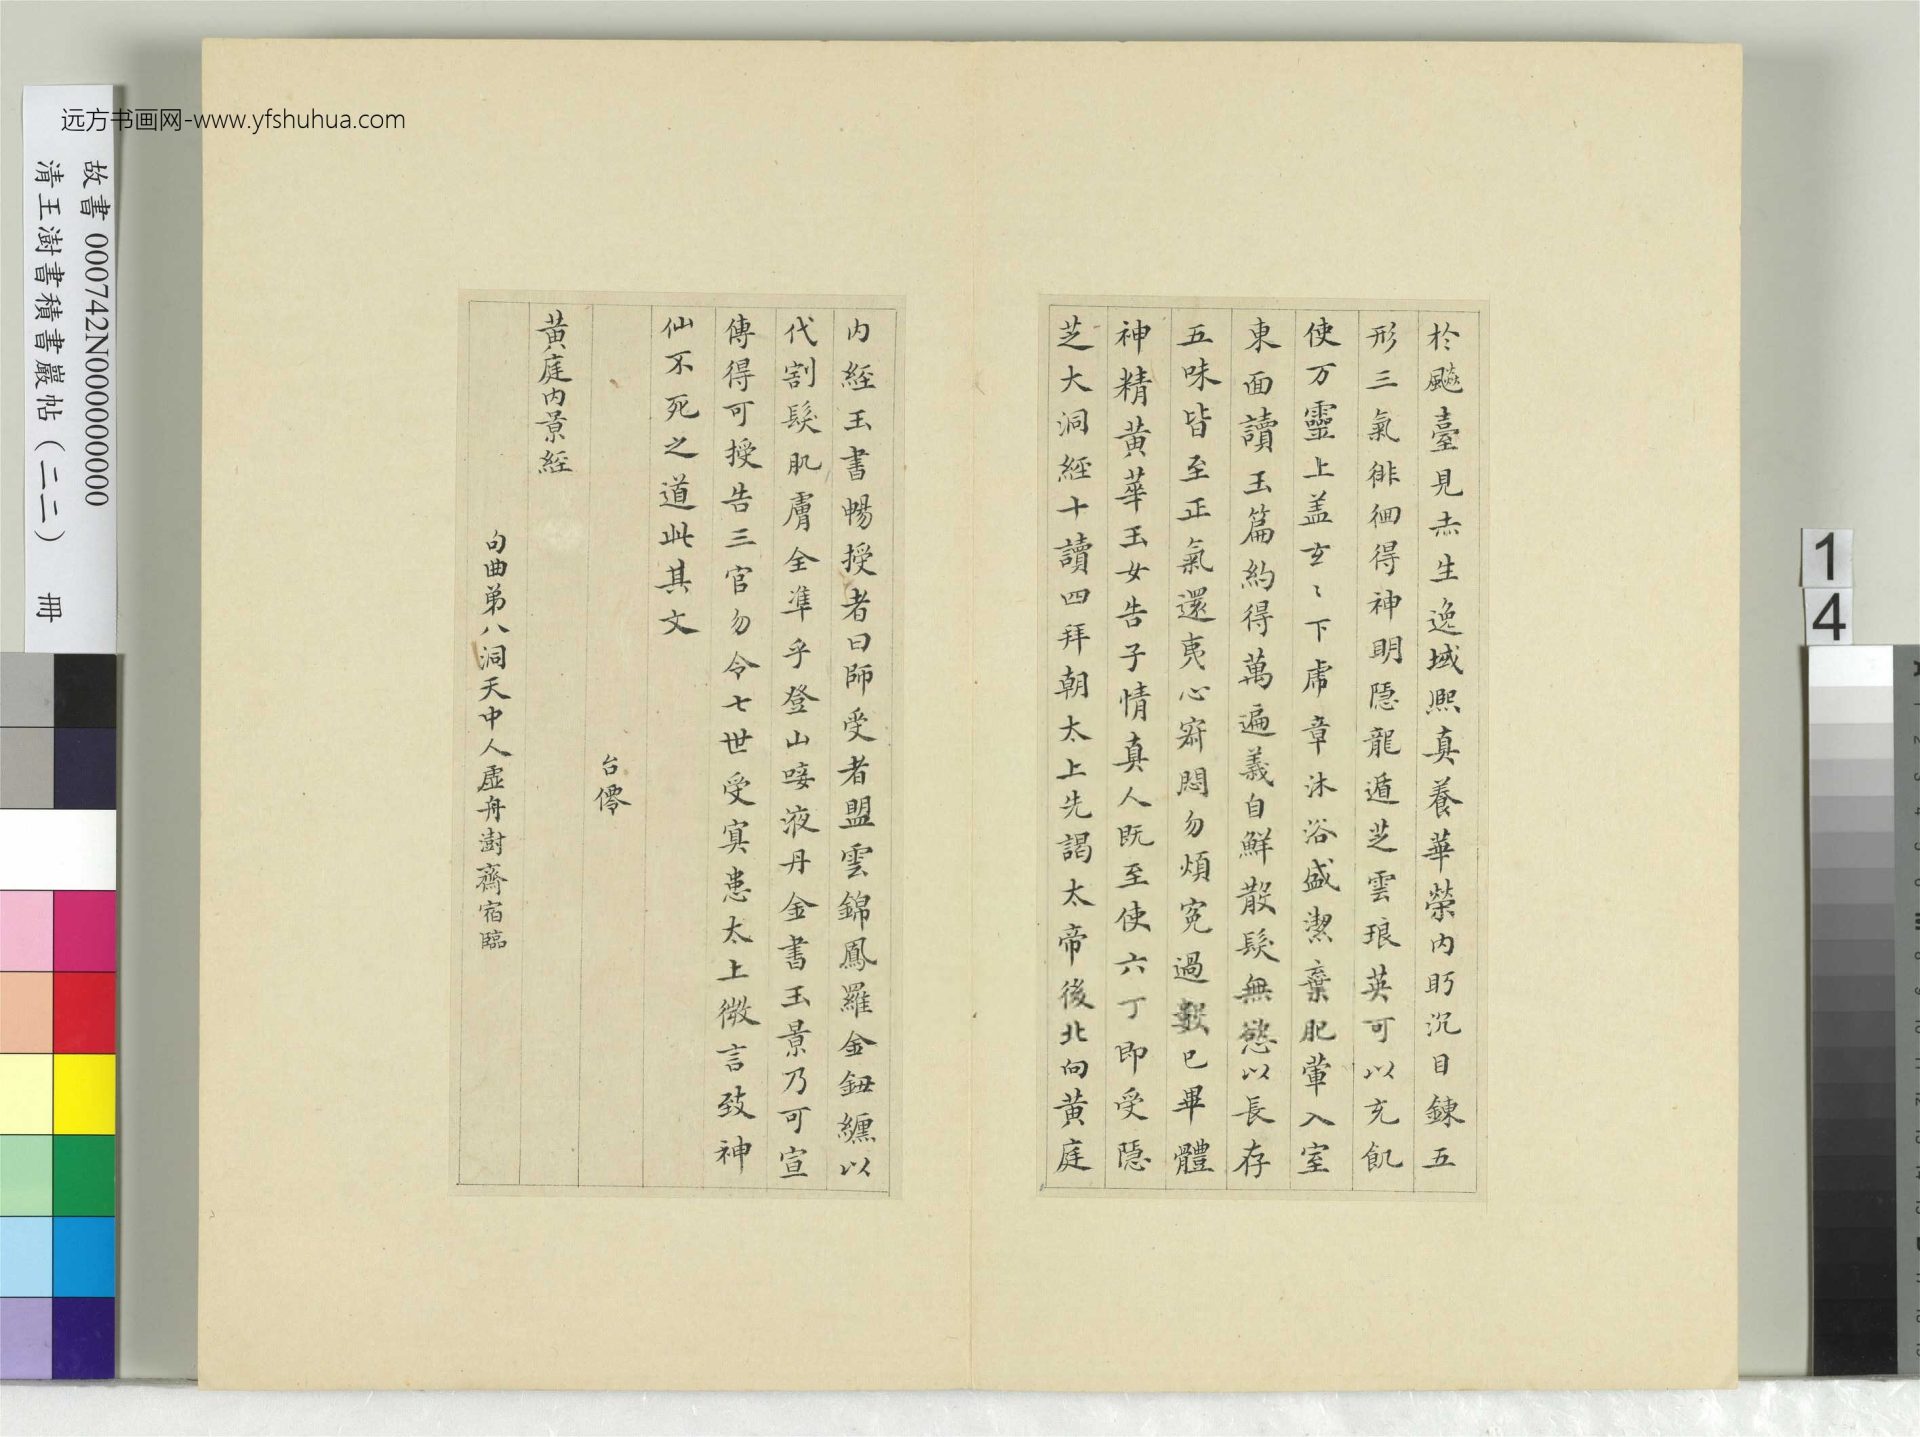 远方书画网-www.yfshuhua.com
故書 000742N000000000
清王澍書積書巖帖（二二） 冊
1
4
於飈臺見赤生逸域熙真養華榮内眄沉目鍊五
形三氣徘徊得神明隱龍遁芝雲琅英可以充飢
使万靈上盖玄〻下虎章沐浴盛潔棄肥薰入室
東面讀玉篇約得萬遍義自鮮散髮無慾以長存
五味皆至正氣還夷心寂悶勿煩冤過數已畢體
神精黃華玉女告子情真人既至使六丁即受隱
芝大洞經十讀四拜朝太上先謁太帝後北向黃庭
内經玉書暢授者曰師受者盟雲錦鳳羅金鈕纏以
代割髮肌膚全準乎登山唼液丹金書玉景乃可宣
傳得可授告三官勿令七世受寘患太上微言致神
仙不死之道此其文
台僊
黃庭内景經
句曲第八洞天中人虛舟澍齋宿臨